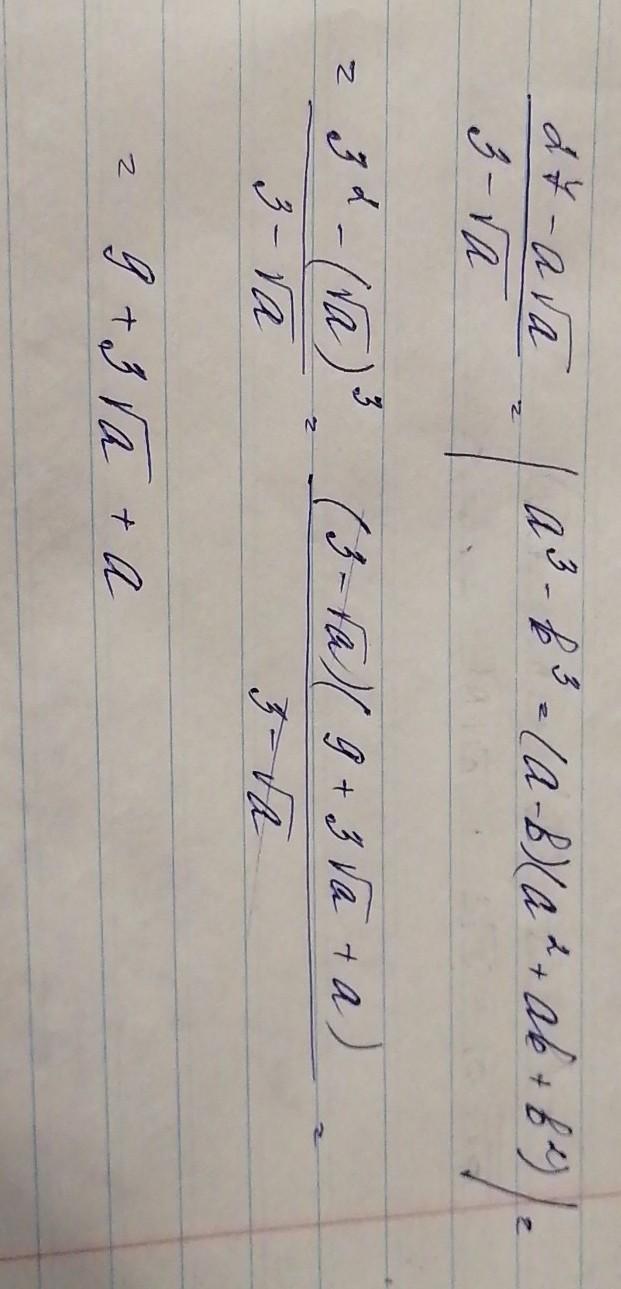 (27 - a√a)/(3 - √a) = | a³ - b³ = (a - b)(a² + ab + b²) | =
= (3² - (√a)³)/(3 - √a) = ((3 - √a)(9 + 3√a + a))/(3 - √a) =
= 9 + 3√a + a